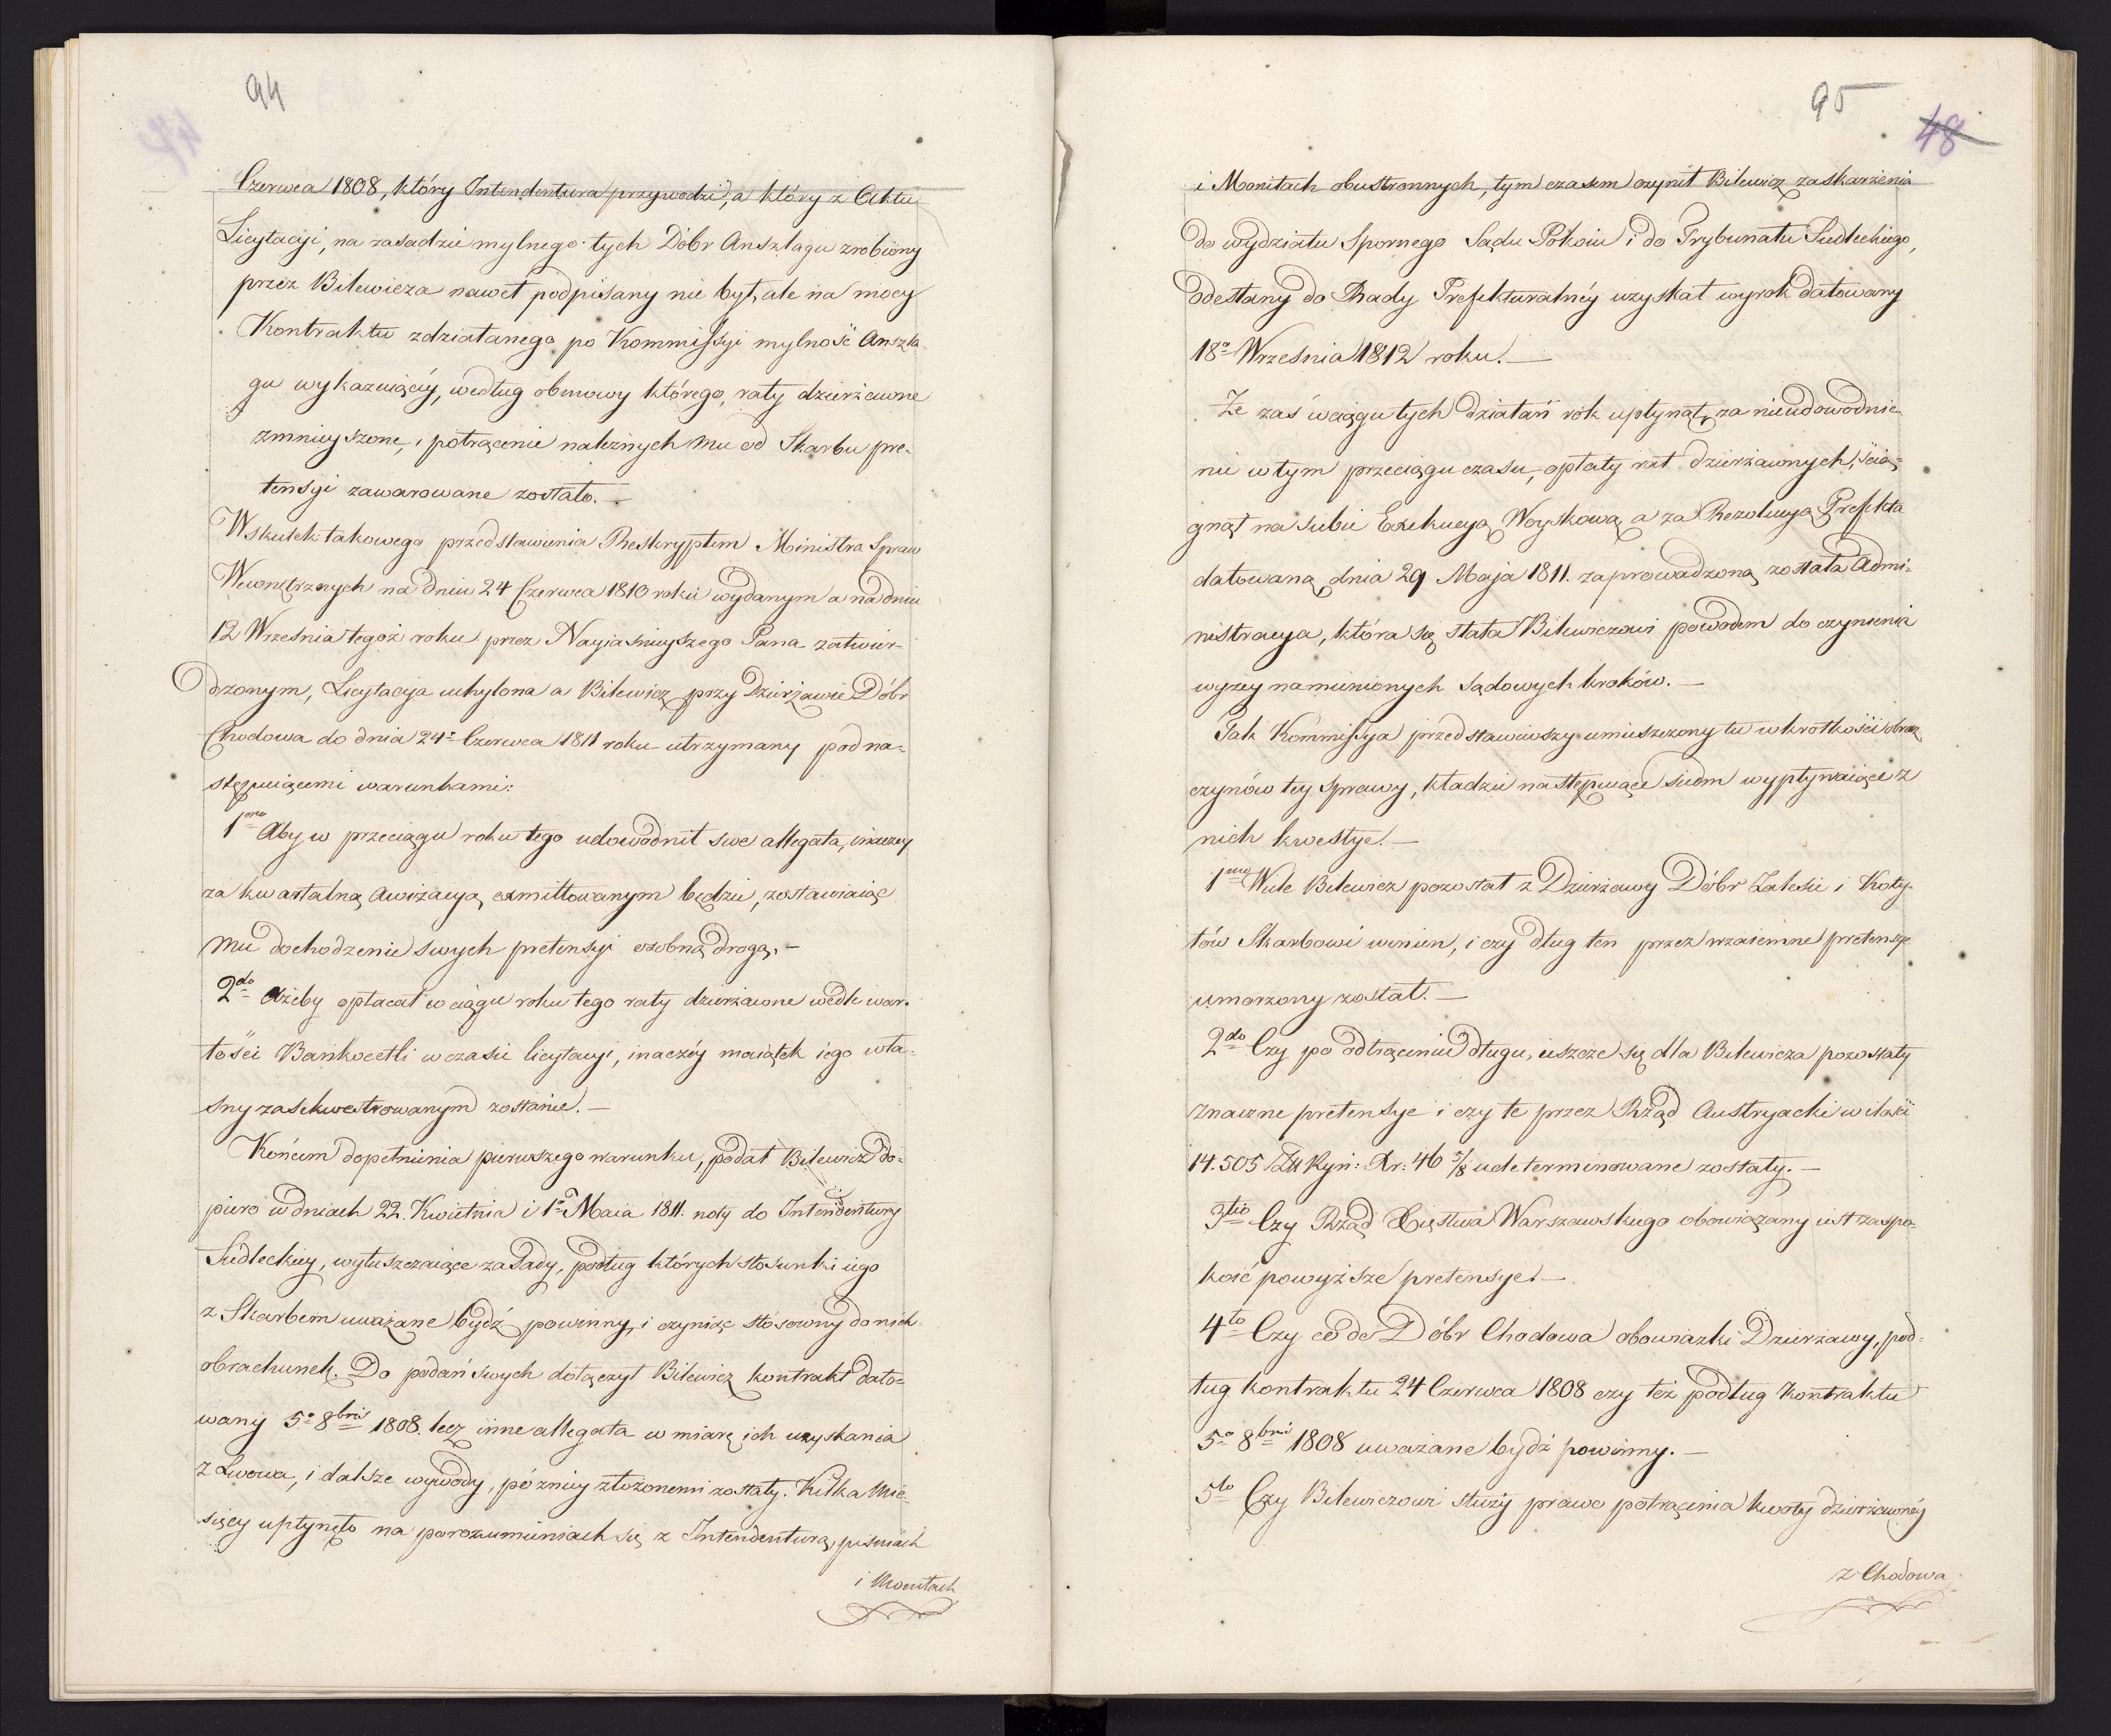 94
Czerwca 1808, który Intendentura przywodzi, a który z Aktu
Licytacyi, na zasadzie mylnego tych Dóbr Anszlagu zrobiony
przez Bilewicza nawet podpisany nie był, ale na mocy
Kontraktu zdziałanego po Kommissyi mylność Anszla-
gu wykazuiącéy, według obmowy którego, raty dzierżawne
zmnieyszone, i potrącenie należnych mu od Skarbu pre-
tensyi zawarowane zostało. —
Wskutek takowego przedstawienia Reskryptem Ministra Spraw
Wewnętrznych na dniu 24 Czerwca 1810 roku wydanym a na dniu
12 Września tegoż roku przez Nayiaśnieyszego Pana zatwier-
dzonym, Licytacyia uchylona a Bilewicz przy Dzierżawie Dóbr
Chodowa do dnia 24º Czerwca 1811 roku utrzymany pod na-
stępuiącemi warunkami:
1mo Aby w przeciągu roku tego udowodnił swe allegata, inaczey
za kwartalną awizacyą exmittowanym będzie, zostawiaiąc
mu dochodzenie swych pretensyi osobną drogą, —
2do Ażeby opłacał w ciągu roku tego raty dzierżawne wedle war-
tości Bankocetli w czasie licytacyi, inaczéy maiątek iego wła-
sny zasekwestrowanym zostanie. —
Końcem dopełnienia pierwszego warunku, podał Bilewicz do-
piero w dniach 22. Kwietnia i 1º Maia 1811. noty do Intendentury
Siedleckiey, wyłuszczaiące zasady, podług których stosunki iego
z Skarbem uważane bydź powinny, i czyniąc stósowny do nich
obrachunek. Do podań swych dołączył Bilewicz kontrakt dato-
wany 5º 8bris 1808. lecz inne allegata w miarę ich uzyskania
z Lwowa, i dalsze wywody, pózniey złożonemi zostały. Kilka Mie-
sięcy upłynęło na porozumieniach się z Intendenturą, pismach
i Monitach
95
48
i Monitach obustronnych, tym czasem czynił Bilewicz zaskarżenia
do wydziału Spornego Sądu Pokoiu i do Trybunału Siedleckiego,
odesłany do Rady Prefekturalnéy uzyskał wyrok datowany
18º Września 1812 roku. —
Że zaś w ciągu tych działań rok upłynął, za nieudowodnie-
nie w tym przeciągu czasu, opłaty rat dzierżawnych, ścią-
gnął na siebie Exekucyą Woyskową, a za Rezolucyą Prefekta
datowaną dnia 29 Maja 1811. zaprowadzoną została Admi-
nistracya, która się stała Bilewiczowi powodem do czynienia
wyzey namienionych sądowych kroków. —
Jak Kommissya przedstawiwszy umieszczony tu w krótkości obraz
czynów tey sprawy, kładzie następuiące siedm wypływaiące z
nich kwestye. —
1mo Wiele Bilewicz pozostał z Dzierżawy Dóbr Zalesie i Koty-
tów Skarbowi winien, i czy dług ten przez wzaiemne pretensye
umorzony został. —
2do Czy po odtrąceniu długu, ieszcze się dla Bilewicza pozostały
znaczne pretensye i czy te przez Rząd Austryacki w ilości
14.505 Zł Ryń: Xr: 46 5/8 udeterminowane zostały. —
3tio Czy Rząd Xięstwa Warszawskiego obowiązany iest zaspo-
koić powyższe pretensye. —
4to Czy co do Dóbr Chodowa obowiązki Dzierżawy, pod-
ług kontraktu 24 Czerwca 1808 czy też podług Kontraktu
5º 8bris 1808 uważane bydź powinny. —
5to Czy Bilewiczowi służy prawo potrącenia kwoty dzierżawnéy
z Chodowa